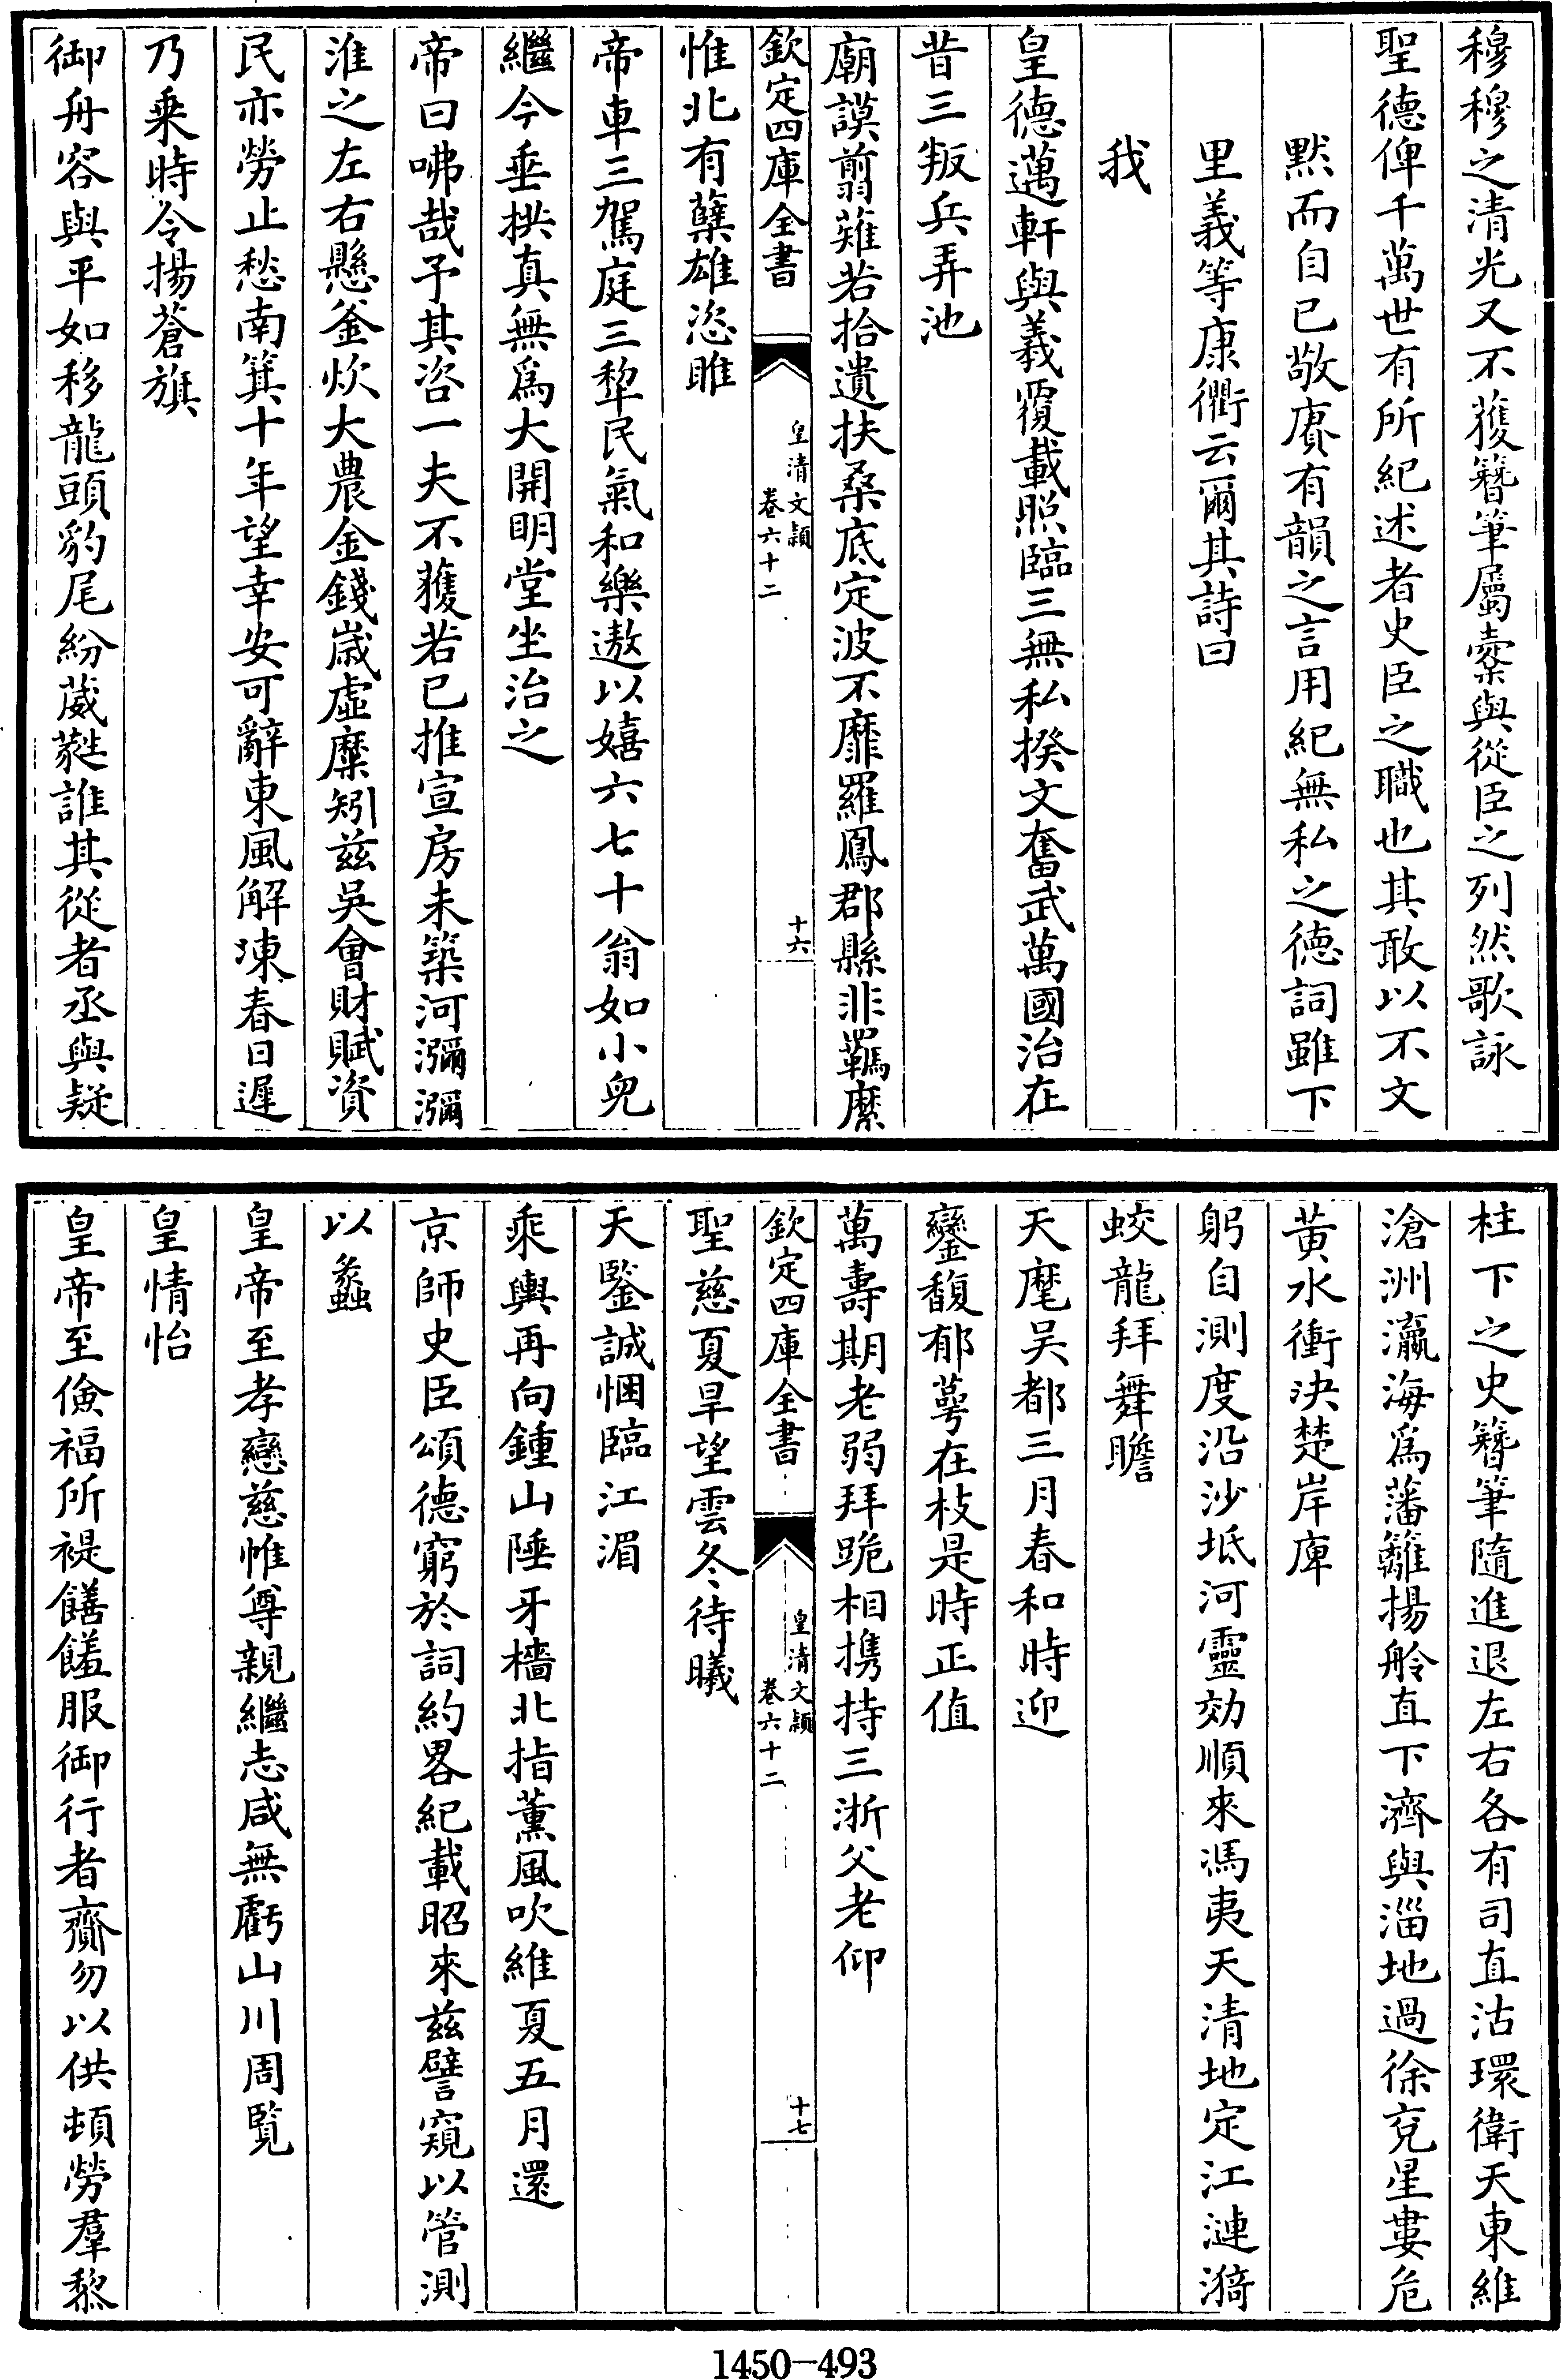 穆穆之清光又不獲簪筆屬橐與從臣之列然歌詠
聖德俾千萬世有所紀述者史臣之職也其敢以不文
默而自已敬賡有韻之言用紀無私之德詞雖下
里義等康衢云爾其詩曰
我
皇德邁軒與羲覆載照臨三無私揆文奮武萬國治在
昔三叛兵弄池
廟謨翦薙若拾遺扶桑底定波不靡羅鳳郡縣非羈縻
欽定四庫全書
皇清文穎
卷六十二
十六
惟北有蘖雄恣睢
帝車三駕庭三犂民氣和樂遨以嬉六七十翁如小兒
繼今垂拱真無爲大開明堂坐治之
帝曰咈哉予其咨一夫不獲若已推宣房未築河瀰瀰
淮之左右懸釜炊大農金錢嵗虛糜矧兹吳會財賦資
民亦勞止愁南箕十年望幸安可辭東風解凍春日遲
乃乗時令揚蒼旗
御舟容與平如移龍頭豹尾紛葳蕤誰其從者丞與疑
柱下之史簪筆隨進退左右各有司直沽環衛天東維
滄洲瀛海爲藩籬揚舲直下濟與淄地過徐兗星婁危
黄水衝決楚岸庳
躬自測度沿沙坻河靈効順來馮夷天清地定江漣漪
蛟龍拜舞瞻
天麾吴都三月春和時迎
鑾馥郁萼在枝是時正值
萬夀期老弱拜跪相携持三浙父老仰
欽定四庫全書
皇清文穎
卷六十二
十七
聖慈夏旱望雲冬待曦
天鑒誠悃臨江湄
乘輿再向鍾山陲牙檣北指薰風吹維夏五月還
京師史臣頌德窮於詞約畧紀載昭來兹譬窺以管測
以蠡
皇帝至孝戀慈帷尊親繼志咸無虧山川周覧
皇情怡
皇帝至儉福所禔饍饈服御行者齎勿以供頓勞羣黎
1450—493